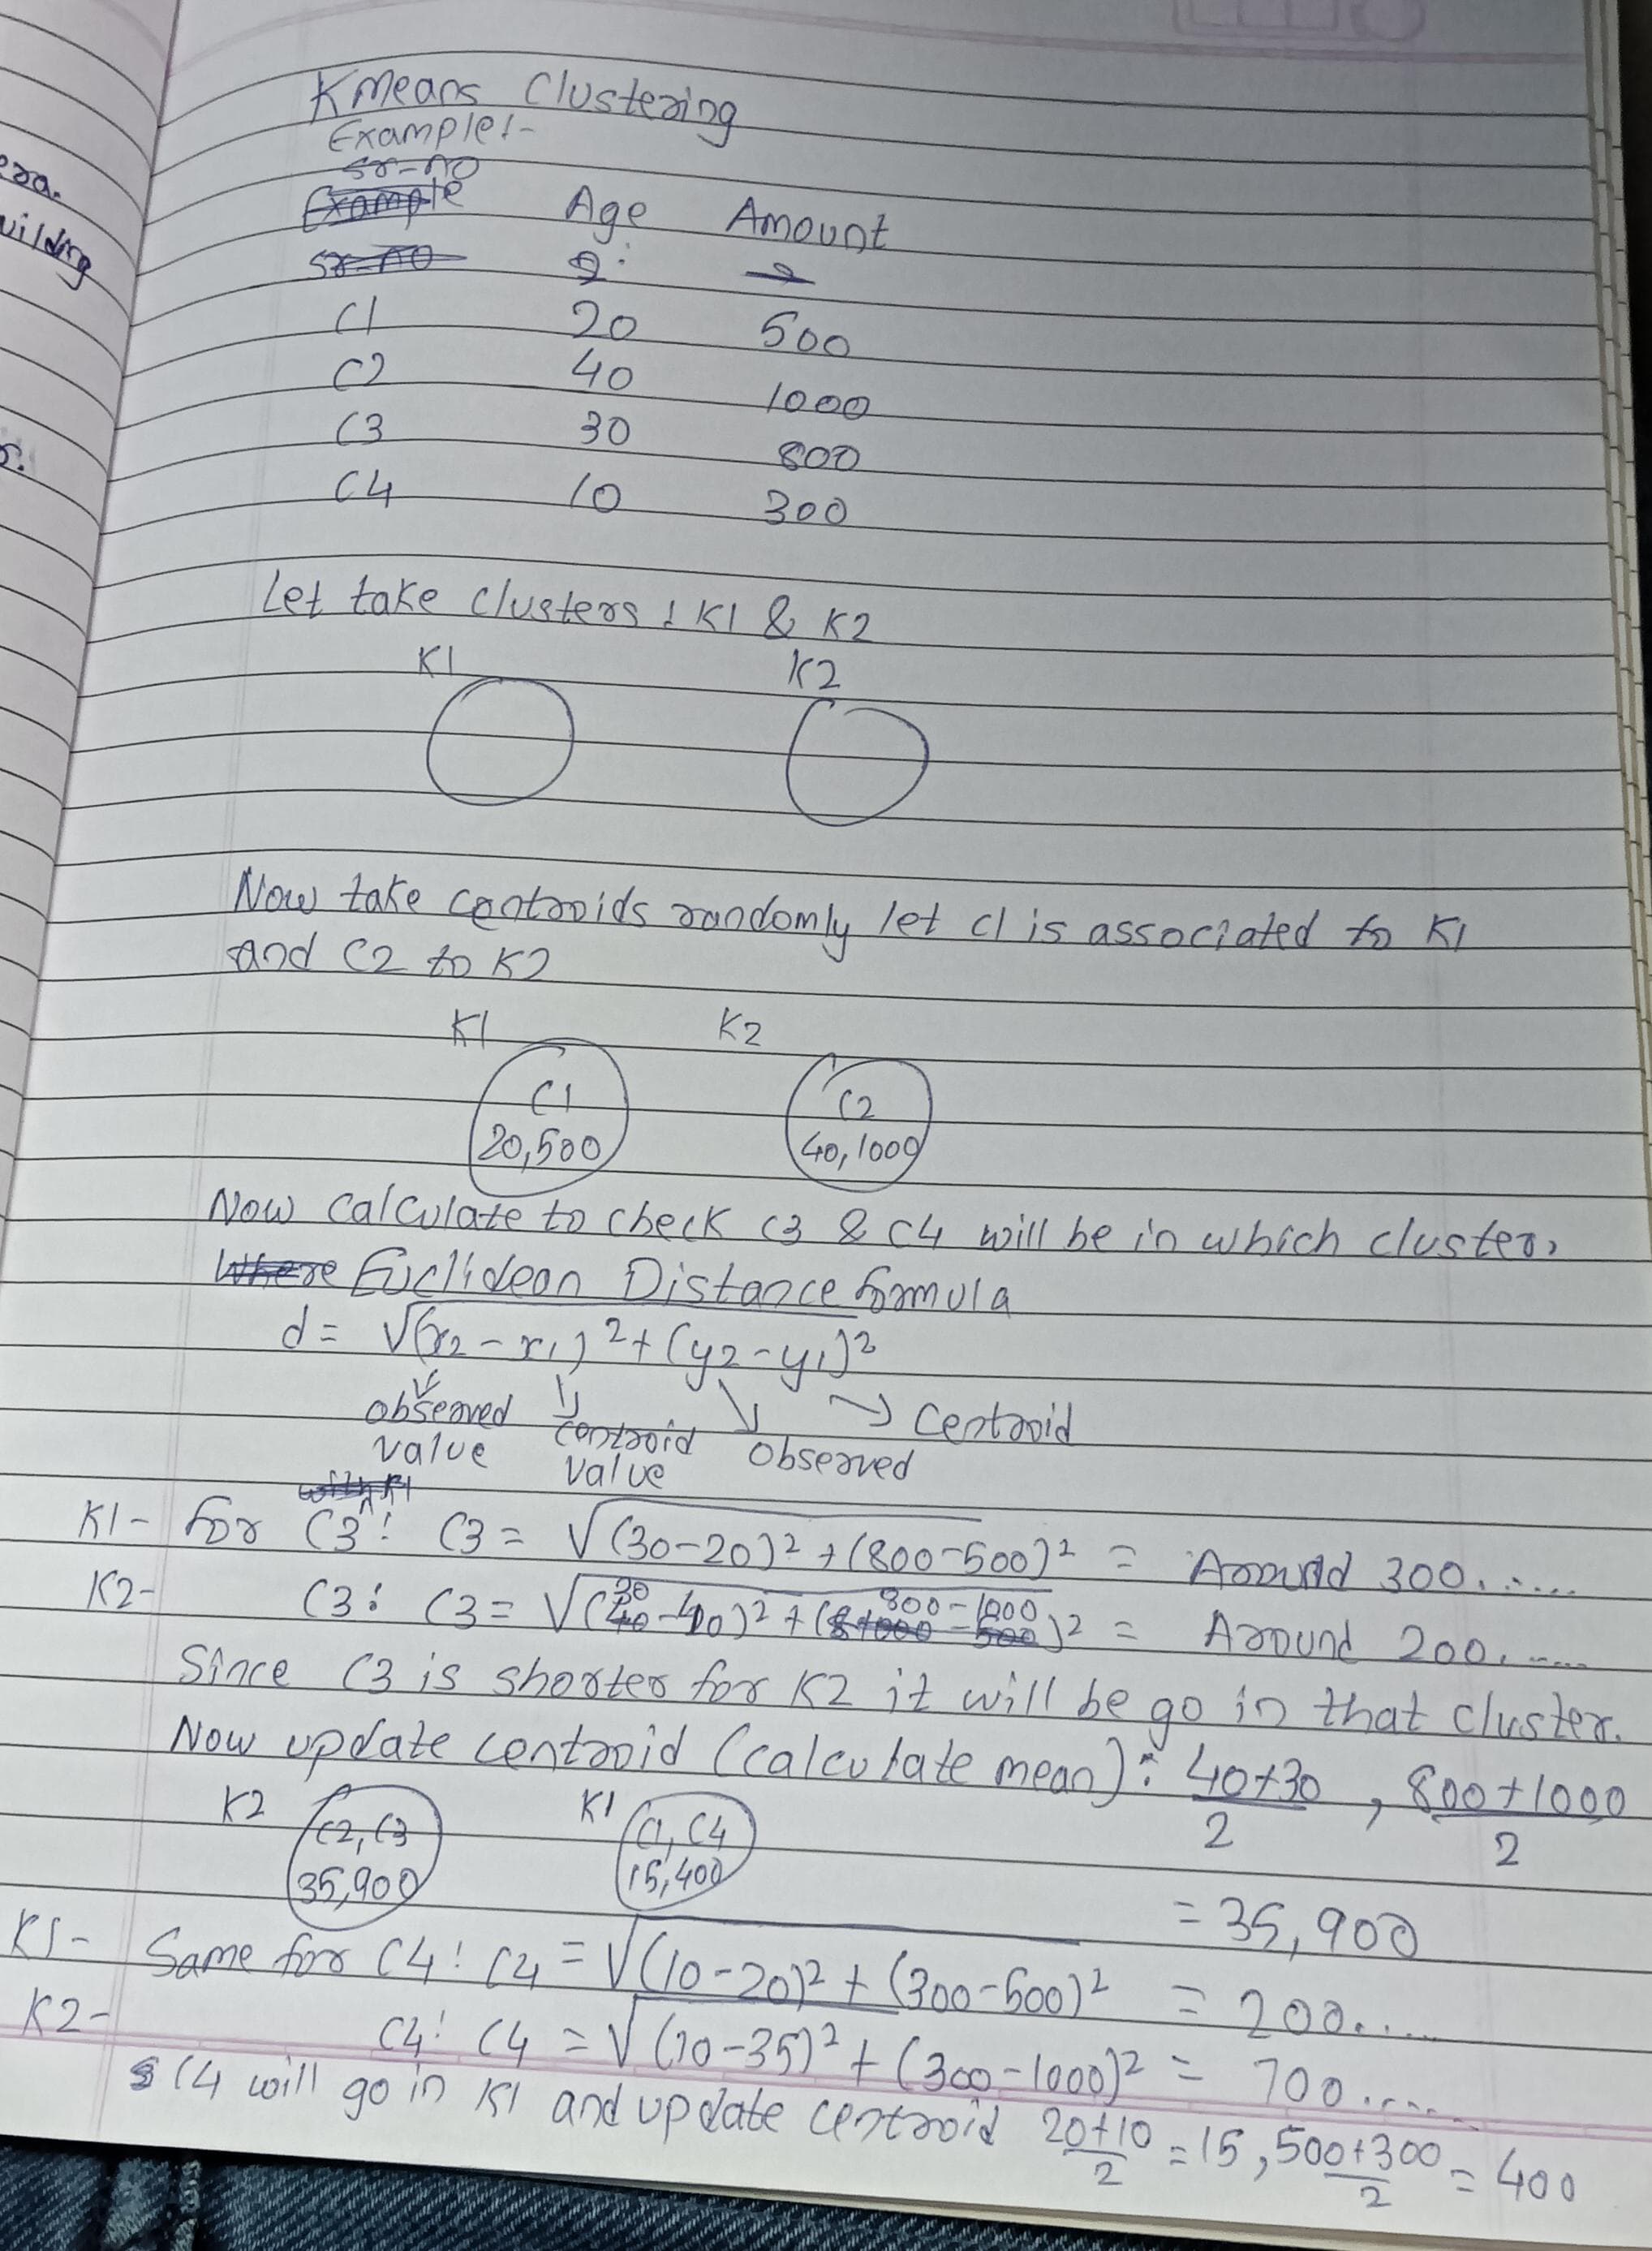 era.
uilding
s.
Kmeans Clustering
Example:-
sr-no
Example Age Amount
sr-no
C1 20 500
C2 40 1000
C3 30 800
C4 10 300
Let take clusters : K1 & K2
K1 K2
Now take centroids randomly let C1 is associated to K1
and C2 to K2
K1 K2
C1 C2
20,500 40,1000
Now calculate to check C3 & C4 will be in which cluster,
Where Euclidean Distance formula
d = √(x2 - x1)² + (y2 - y1)²
observed value centroid value observed centroid
with K1
K1 - for C3 : C3 = √(30-20)² + (800-500)² = Around 300......
K2 - C3 : C3 = √(30-40)² + (800-1000)² = Around 200......
Since C3 is shorter for K2 it will be go in that cluster.
Now update centroid (calculate mean) : 40+30/2 , 800+1000/2
K2 C2, C3 K1 C1, C4
35,900 15,400
= 35,900
K1 - Same for C4 : C4 = √(10-20)² + (300-500)² = 200......
K2 - C4 : C4 = √(10-35)² + (300-1000)² = 700......
C4 will go in K1 and update centroid 20+10/2 = 15 , 500+300/2 = 400